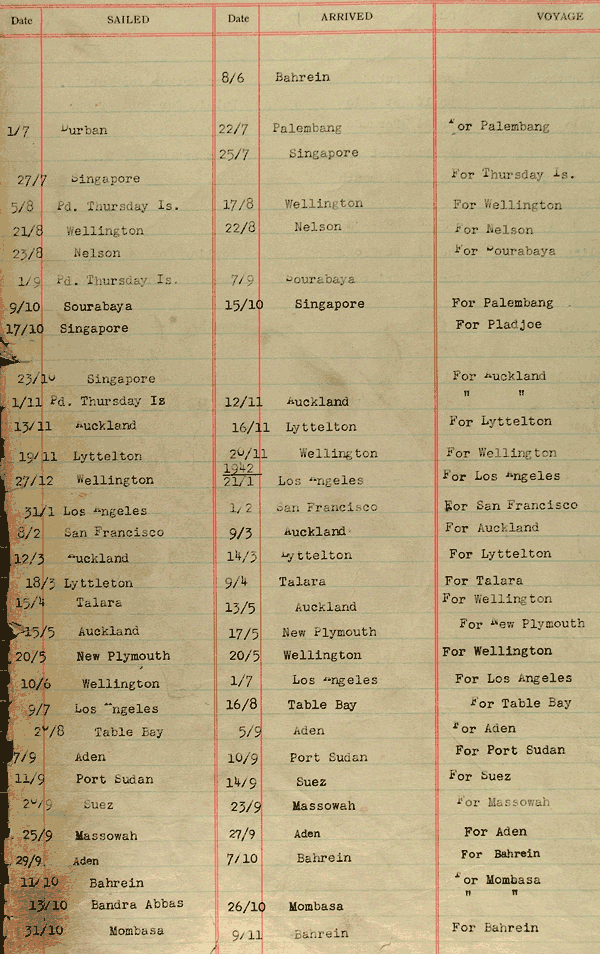 Date SAILED Date ARRIVED VOYAGE
8/6 Bahrein
1/7 Durban 22/7 Palembang For Palembang
25/7 Singapore
27/7 Singapore For Thursday Is.
5/8 Pd. Thursday Is. 17/8 Wellington For Wellington
21/8 Wellington 22/8 Nelson For Nelson
23/8 Nelson For Sourabaya
1/9 Pd. Thursday Is. 7/9 Sourabaya
9/10 Sourabaya 15/10 Singapore For Palembang
17/10 Singapore For Pladjoe
23/10 Singapore For Auckland
1/11 Pd. Thursday Is 12/11 Auckland " "
13/11 Auckland 16/11 Lyttelton For Lyttelton
19/11 Lyttelton 20/11 Wellington For Wellington
1942
27/12 Wellington 21/1 Los Angeles For Los Angeles
31/1 Los Angeles 1/2 San Francisco For San Francisco
8/2 San Francisco 9/3 Auckland For Auckland
12/3 Auckland 14/3 Lyttelton For Lyttelton
18/3 Lyttleton 9/4 Talara For Talara
15/4 Talara 13/5 Auckland For Wellington
15/5 Auckland 17/5 New Plymouth For New Plymouth
20/5 New Plymouth 20/5 Wellington For Wellington
10/6 Wellington 1/7 Los Angeles For Los Angeles
9/7 Los Angeles 16/8 Table Bay For Table Bay
20/8 Table Bay 5/9 Aden For Aden
7/9 Aden 10/9 Port Sudan For Port Sudan
11/9 Port Sudan 14/9 Suez For Suez
20/9 Suez 23/9 Massowah For Massowah
25/9 Massowah 27/9 Aden For Aden
29/9 Aden 7/10 Bahrein For Bahrein
11/10 Bahrein For Mombasa
13/10 Bandra Abbas 26/10 Mombasa " "
31/10 Mombasa 9/11 Bahrein For Bahrein